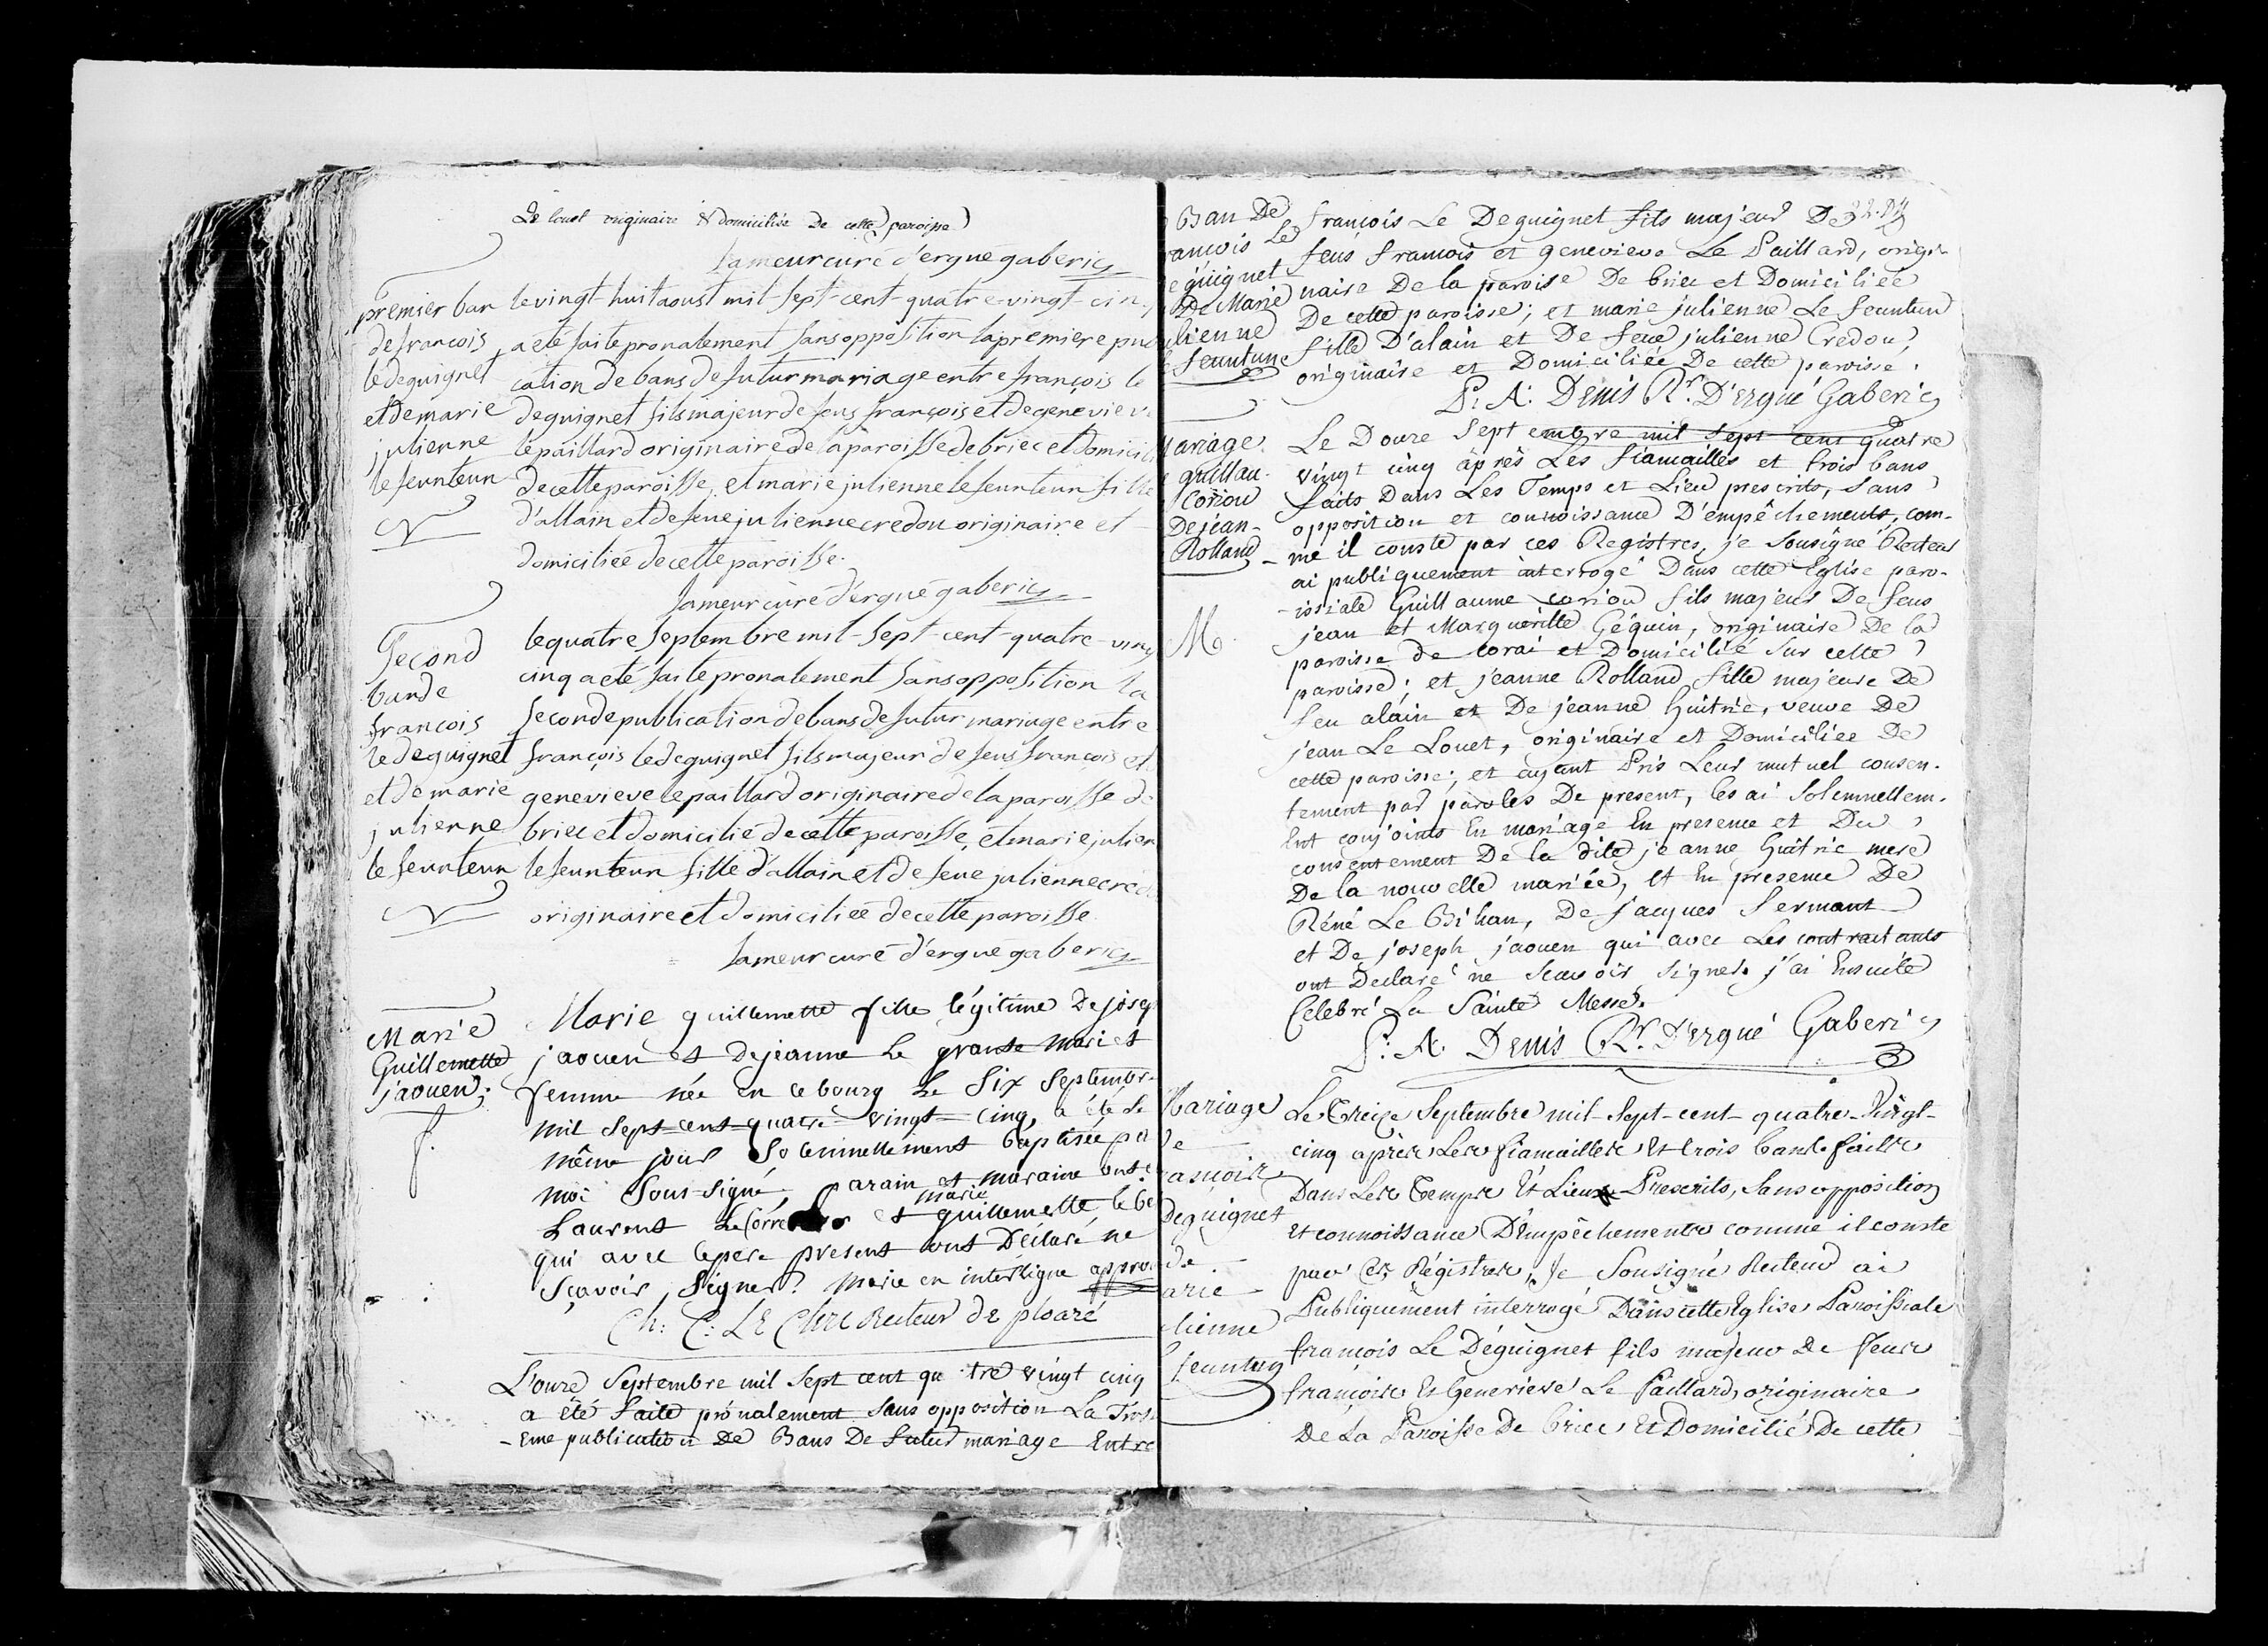 Le louet originaire & domiciliée De cette paroisse
Lameur curé d'ergué gaberic
premier ban
de francois
le deguignet
et de marie
julienne
le feunteun
le vingt-huit aoust mil-sept-cent-quatre-vingt-cinq
a eté faite pronalement sans opposition la premiere publi
cation de bans de futur mariage entre françois le
deguignet fils majeur de feus françois et de genevieve
le paillard originaire de la paroisse de briec et domicili
de cette paroisse, et marie julienne le feunteun fille
d'allain et de feue julienne credou originaire et
domiciliée de cette paroisse.
Lameur curé d'ergué gaberic
Second
ban de
francois
le deguignet
et de marie
julienne
le feunteun
le quatre septembre mil-sept-cent-quatre-ving
cinq a eté faite pronalement sans opposition la
seconde publication de bans de futur mariage entre
françois le deguignet fils majeur de feus françois et
genevieve le paillard originaire de la paroisse de
briec et domicilié de cette paroisse, et marie julien
le feunteun fille d'allain et de feue julienne cred
originaire et domiciliée de cette paroisse.
Lameur curé d'ergué gaberic
Marie
Guillemette
jaouen;
f.
Marie guillemette fille légitime De joseph
jaouen et de jeanne Le grand mari et
femme née en ce bourg Le Six Septembre
mil sept-cent-quatre-vingt-cinq, a été le
même jour Solennellement baptisée pa
moi Sous-signé, parain et maraine ont e
marie
Laurent Le Corre et guillemette le be
qui avec le pere present ont Déclaré ne
sçavoir signer. marie en interligne approu
Ch: C: LE Clerc Recteur de ploaré
L'onze Septembre mil Sept cent quatre vingt cinq
a été faite prônalement sans opposition La Troisi
-eme publication De Bans De futur mariage Entre
Ban De
ancois Le
eguignet
De Marie
ulienne
Le feunteune
32.
françois Le Deguignet fils majeur De
feus francois et genevieve Le Paillard, origi-
naire De la paroisse De briec et Domiciliée
De cette paroisse; et marie julienne Le feunteun
fille D'alain et De feue julienne Credou,
originaire et Domiciliée De cette paroisse.
P: A: Denis Rr. D'ergué Gaberic
Mariage
guillau.
Coriou
De jean-
Rolland
M.
Le Douze Septembre mil sept cent quatre
vingt cinq après Les fiancailles et trois bans
faits Dans Les Temps et Lieu prescrits, sans
opposition et connoissance D'empêchements, com-
me il conste par ces Registres, je sousigné Recteur
ai publiquement interrogé Dans cette Eglise paro-
-issiale Guillaume coriou fils majeur De feus
jean et Marguerite Géquin, originaire De la
paroisse de Corai et Domicilié sur cette
paroisse; et jeanne Rolland fille majeure De
feu alain et De jeanne Guitrie, veuve De
jean Le Louet, originaire et Domiciliée De
cette paroisse; et ayant Pris Leur mutuel consen-
tement par paroles De present, les ai solennellem-
Ent conjoints En mariage En presence et Du
consentement De la dite jeanne Guitrie mere
De la nouvelle mariée, et En presence De
Réné Le Bihan, De jacques Sermant
et De joseph jaouen qui avec Les contractants
ont Declaré ne sçavoir signer. j'ai Ensuite
Celebré La Sainte Messe.
P: A: Denis Rr. D'ergué Gaberic
Mariage
De
ancois
Deguignet
de
arie
lienne
feunteun
Le Treize Septembre mil Sept-cent-quatre-vingt-
cinq après Les fiancailles Et trois bans faits
Dans Les Temps Et Lieux Prescrits, sans opposition
Et connoissance D'Empêchements comme il conste
par Ces Régistres, Je Sousigné Recteur ai
Publiquement interrogé Dans cette Eglise Paroissiale
françois Le Déguignet fils majeur De feus
françois Et Genevieve Le Paillard, originaire
De La Paroisse De Briec Et Domicilié De cette